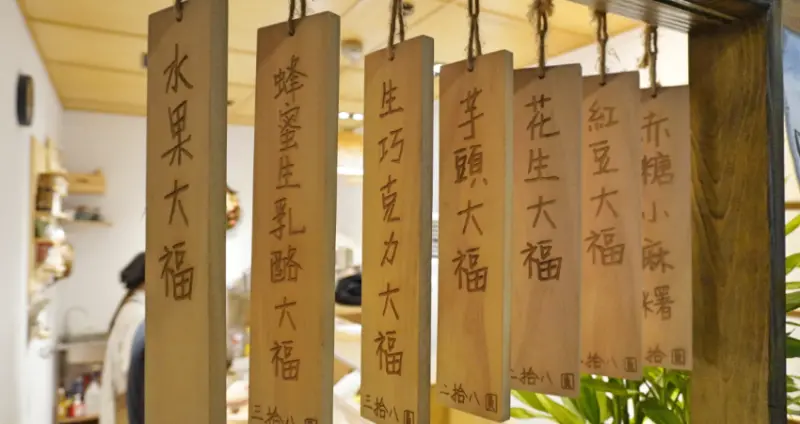 水果大福
蜂蜜生乳酪大福
三拾八
生巧克力大福
三拾八圓
芋頭大福
二拾八圓
花生大福
二拾八圓
紅豆大福
拾八圓
赤糖小麻糬
拾圓